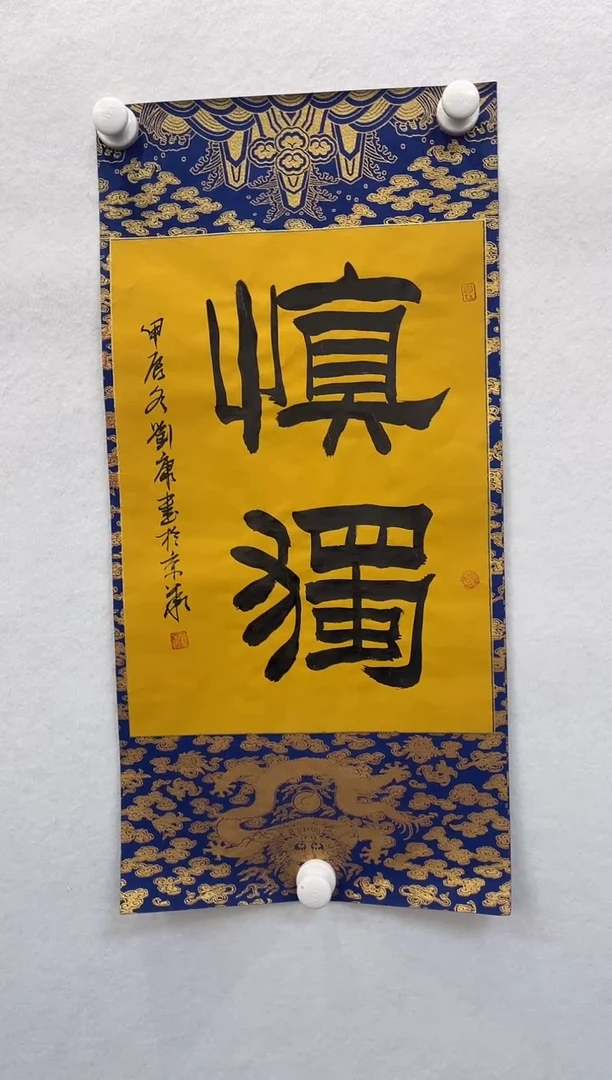 慎獨
甲辰冬劉康書於京華